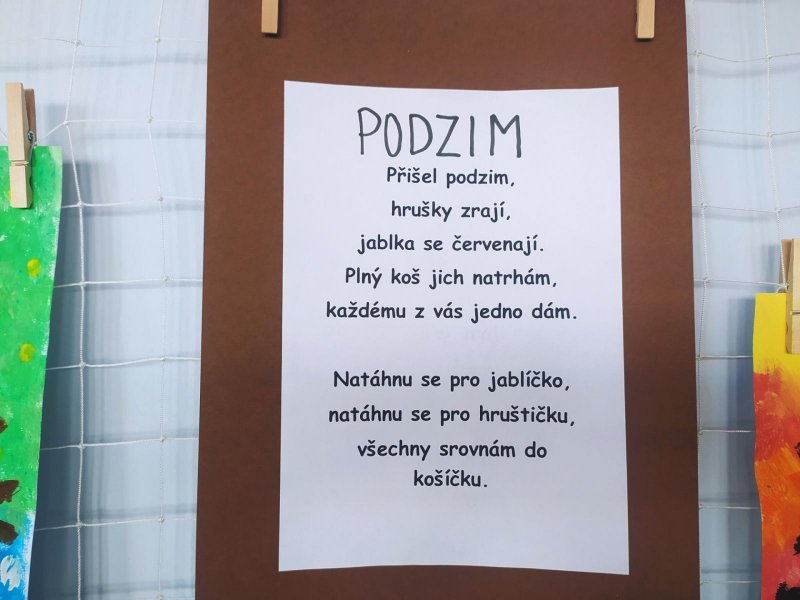 PODZIM
Přišel podzim,
hrušky zrají,
jablka se červenají.
Plný koš jich natrhám,
každému z vás jedno dám.
Natáhnu se pro jablíčko,
natáhnu se pro hruštičku,
všechny srovnám do
košíčku.